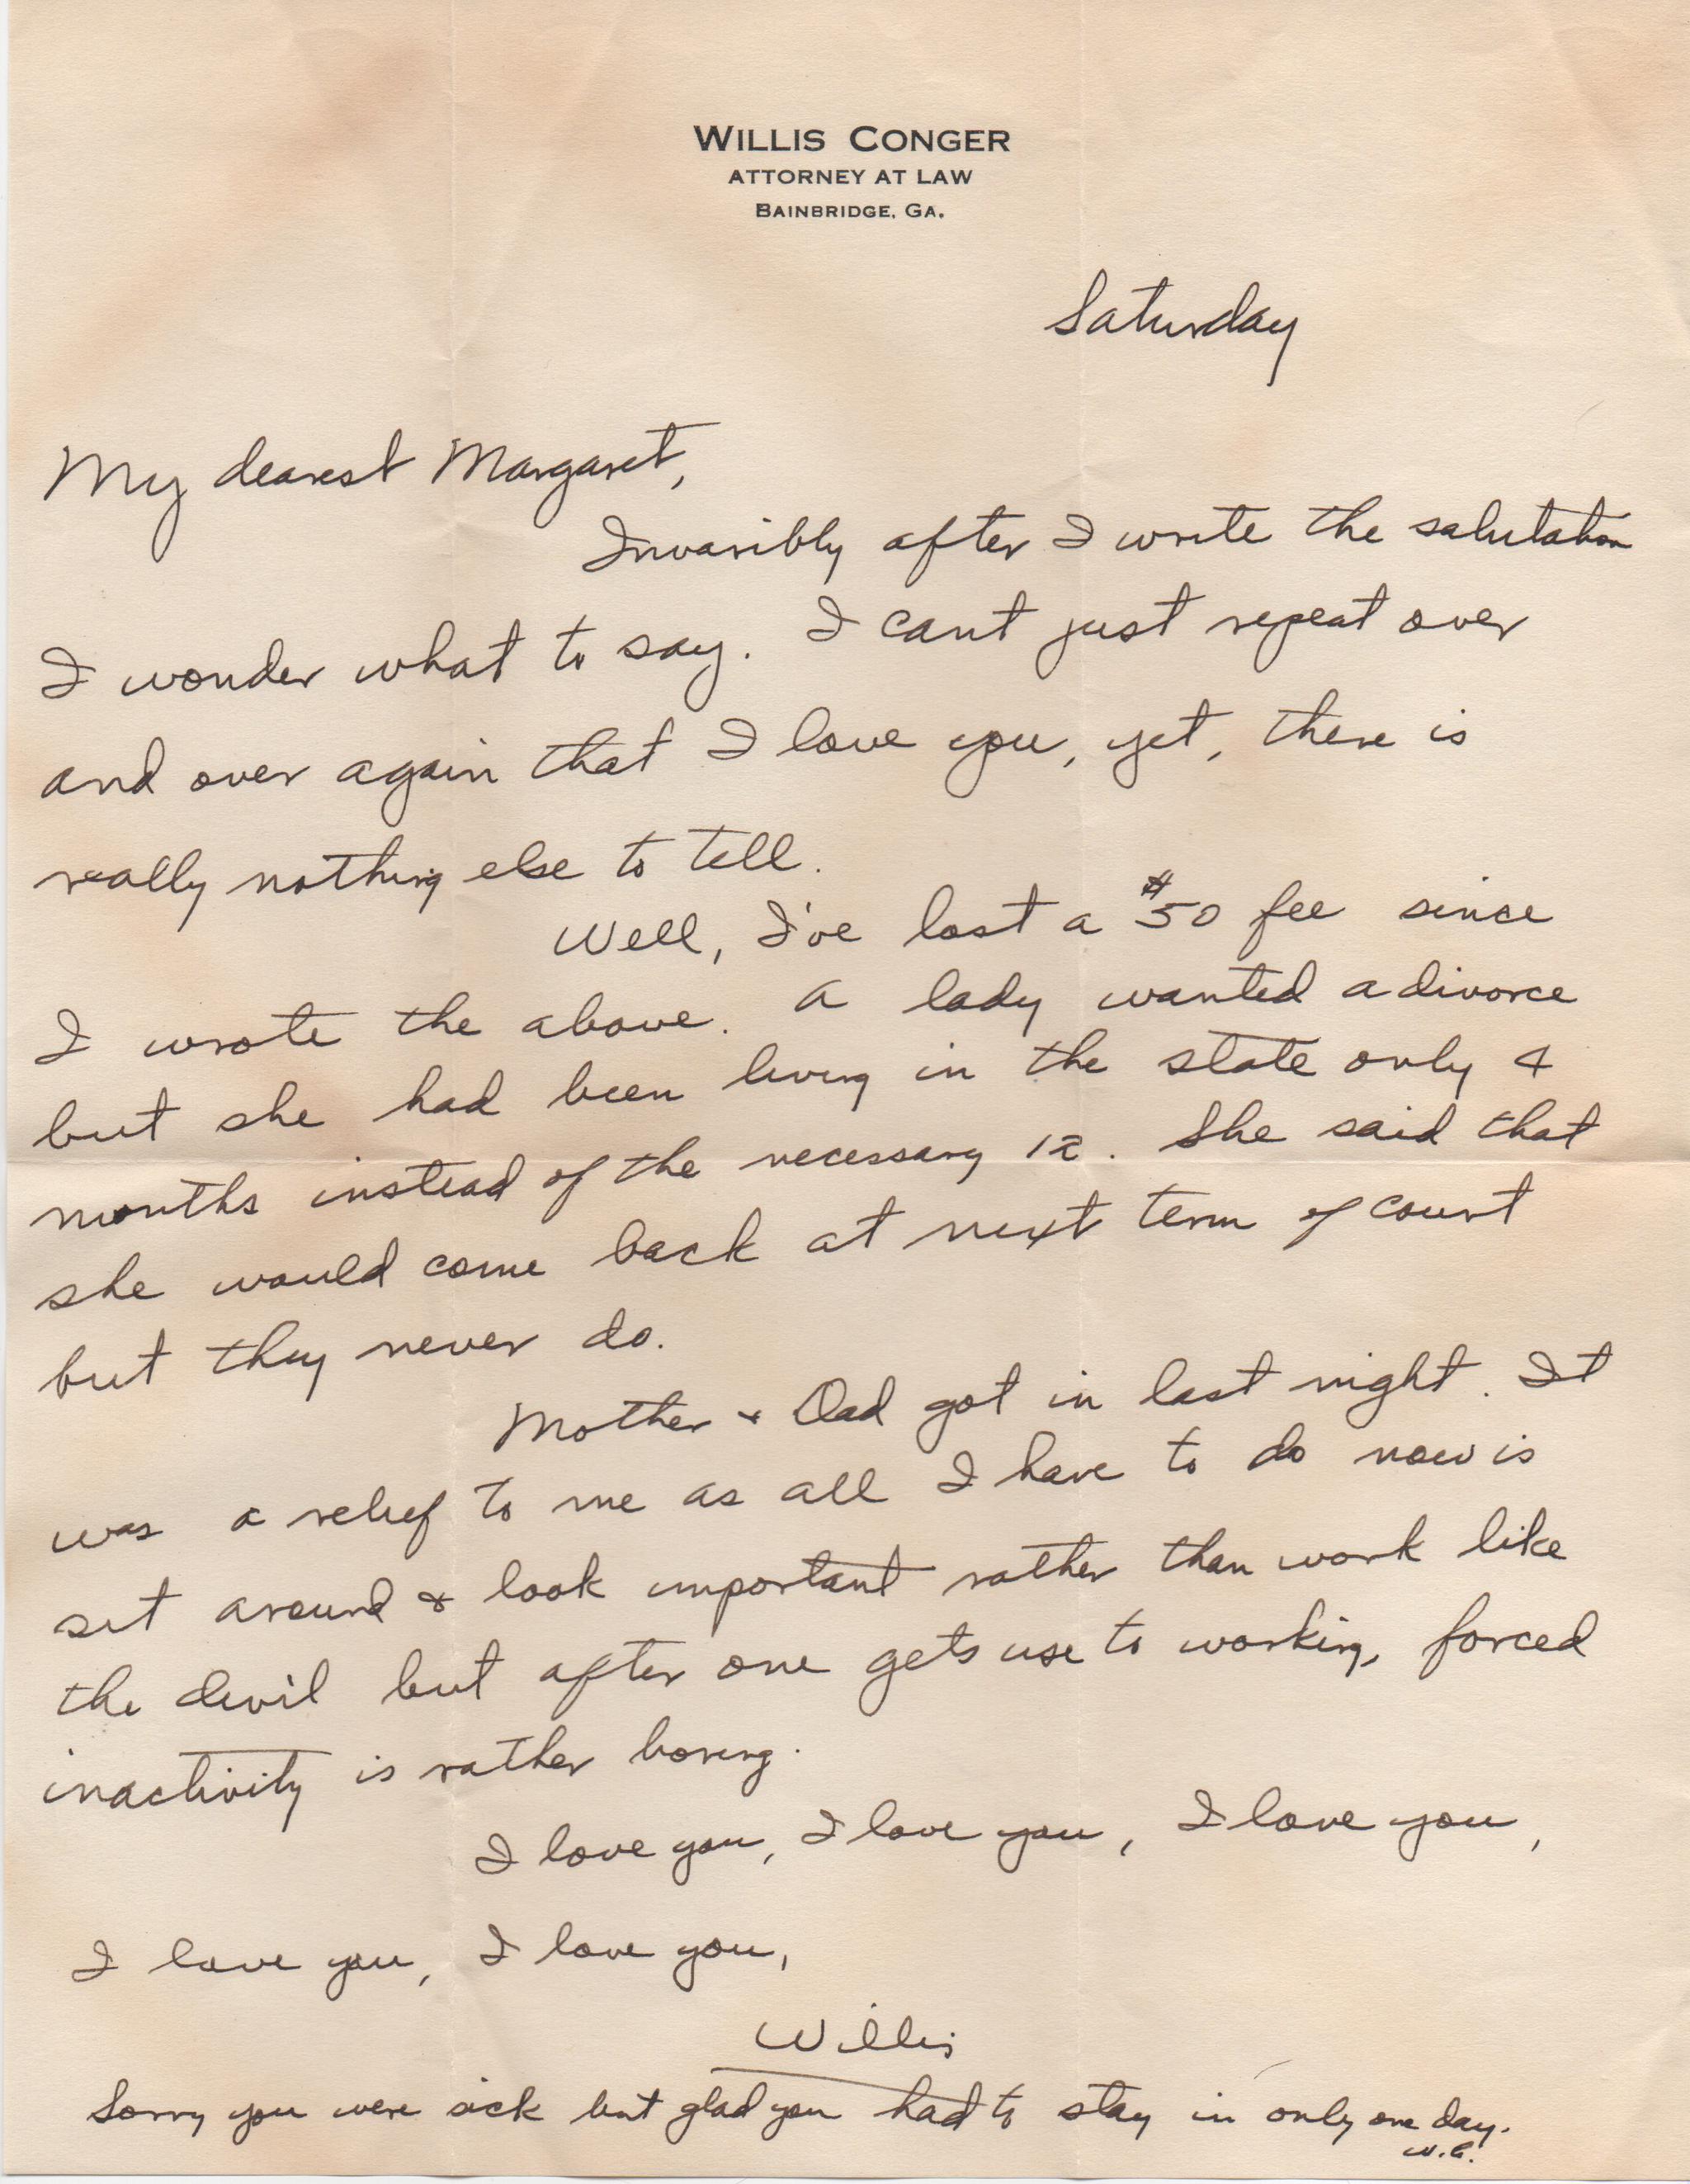 WILLIS CONGER
ATTORNEY AT LAW
BAINBRIDGE, GA.
Saturday
My dearest Margaret,
Invaribly after I write the salutation
I wonder what to say. I cant just repeat over
and over again that I love you, yet, there is
really nothing else to tell.
Well, I've lost a $50 fee since
I wrote the above. A lady wanted a divorce
but she had been living in the state only 4
months instead of the necessary 12. She said that
she would come back at next term of court
but they never do.
Mother & Dad got in last night. It
was a relief to me as all I have to do now is
sit around & look important rather than work like
the devil but after one gets use to working, forced
inactivity is rather boring.
I love you, I love you, I love you,
I love you, I love you,
Willis
Sorry you were sick but glad you had to stay in only one day.
W.C.